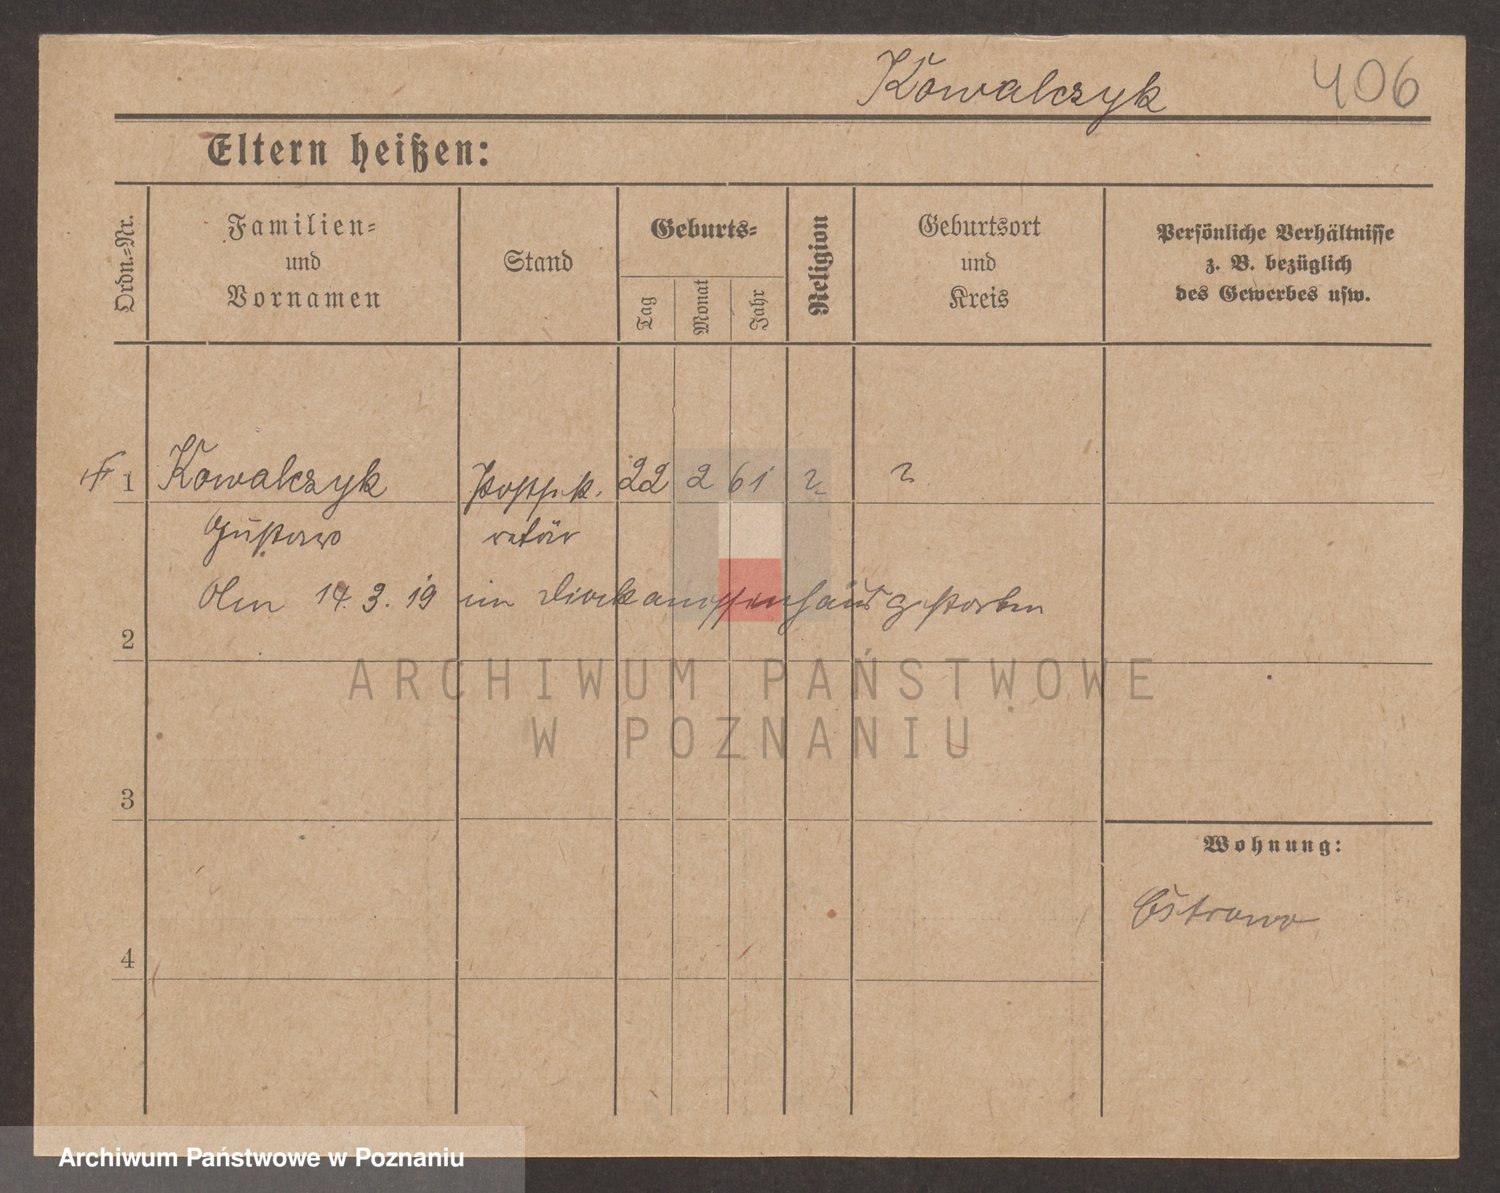 Kowalczyk 406
Eltern heißen:
Ordn.=Nr.
Familien=
und
Vornamen
Stand
Geburts=
Tag
Monat
Jahr
Religion
Geburtsort
und
Kreis
Persönliche Verhältnisse
z. B. bezüglich
des Gewerbes usw.
1 Kowalczyk Postsek. 22 2 61 ? ?
Gustaw retär
Am 14. 3. 19 im gestorben
2
ARCHIWUM PAŃSTWOWE
W POZNANIU
3
Wohnung:
Ostrowo
4
Archiwum Państwowe w Poznaniu